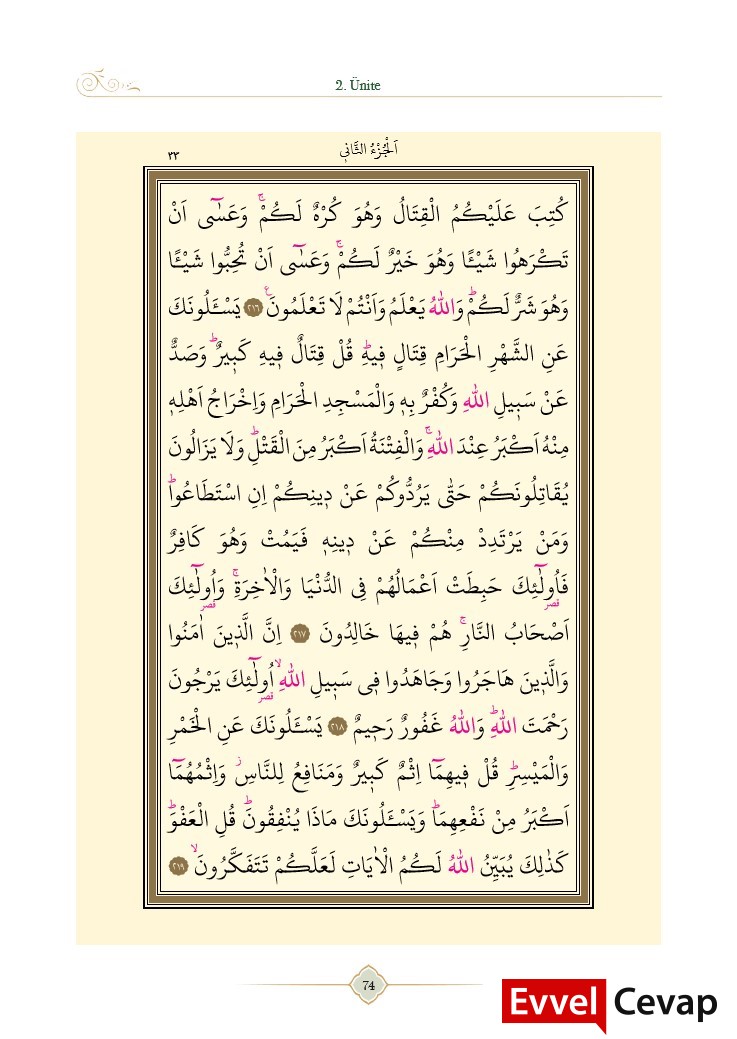 2. Ünite
اَلْجُزْءُ الثَّانٖي
٣٣
كُتِبَ عَلَيْكُمُ الْقِتَالُ وَهُوَ كُرْهٌ لَكُمْۚ وَعَسٰٓى اَنْ
تَكْرَهُوا شَيْـًٔا وَهُوَ خَيْرٌ لَكُمْۚ وَعَسٰٓى اَنْ تُحِبُّوا شَيْـًٔا
وَهُوَ شَرٌّ لَكُمْؕ وَاللّٰهُ يَعْلَمُ وَاَنْتُمْ لَا تَعْلَمُونَࣖ ﴿٢١٦﴾ يَسْـَٔلُونَكَ
عَنِ الشَّهْرِ الْحَرَامِ قِتَالٍ فٖيهِؕ قُلْ قِتَالٌ فٖيهِ كَبٖيرٌؕ وَصَدٌّ
عَنْ سَبٖيلِ اللّٰهِ وَكُفْرٌ بِهٖ وَالْمَسْجِدِ الْحَرَامِ وَاِخْرَاجُ اَهْلِهٖ
مِنْهُ اَكْبَرُ عِنْدَ اللّٰهِۚ وَالْفِتْنَةُ اَكْبَرُ مِنَ الْقَتْلِؕ وَلَا يَزَالُونَ
يُقَاتِلُونَكُمْ حَتّٰى يَرُدُّوكُمْ عَنْ دٖينِكُمْ اِنِ اسْتَطَاعُواؕ
وَمَنْ يَرْتَدِدْ مِنْكُمْ عَنْ دٖينِهٖ فَيَمُتْ وَهُوَ كَافِرٌ
فَاُولٰٓئِكَ حَبِطَتْ اَعْمَالُهُمْ فِي الدُّنْيَا وَالْاٰخِرَةِۚ وَاُولٰٓئِكَ
اَصْحَابُ النَّارِۚ هُمْ فٖيهَا خَالِدُونَ ﴿٢١٧﴾ اِنَّ الَّذٖينَ اٰمَنُوا
وَالَّذٖينَ هَاجَرُوا وَجَاهَدُوا فٖي سَبٖيلِ اللّٰهِۙ اُولٰٓئِكَ يَرْجُونَ
رَحْمَتَ اللّٰهِؕ وَاللّٰهُ غَفُورٌ رَحٖيمٌ ﴿٢١٨﴾ يَسْـَٔلُونَكَ عَنِ الْخَمْرِ
وَالْمَيْسِرِؕ قُلْ فٖيهِمَٓا اِثْمٌ كَبٖيرٌ وَمَنَافِعُ لِلنَّاسِؗ وَاِثْمُهُمَٓا
اَكْبَرُ مِنْ نَفْعِهِمَاؕ وَيَسْـَٔلُونَكَ مَاذَا يُنْفِقُونَؕ قُلِ الْعَفْوَؕ
كَذٰلِكَ يُبَيِّنُ اللّٰهُ لَكُمُ الْاٰيَاتِ لَعَلَّكُمْ تَتَفَكَّرُونَۙ ﴿٢١٩﴾
74
Evvel Cevap